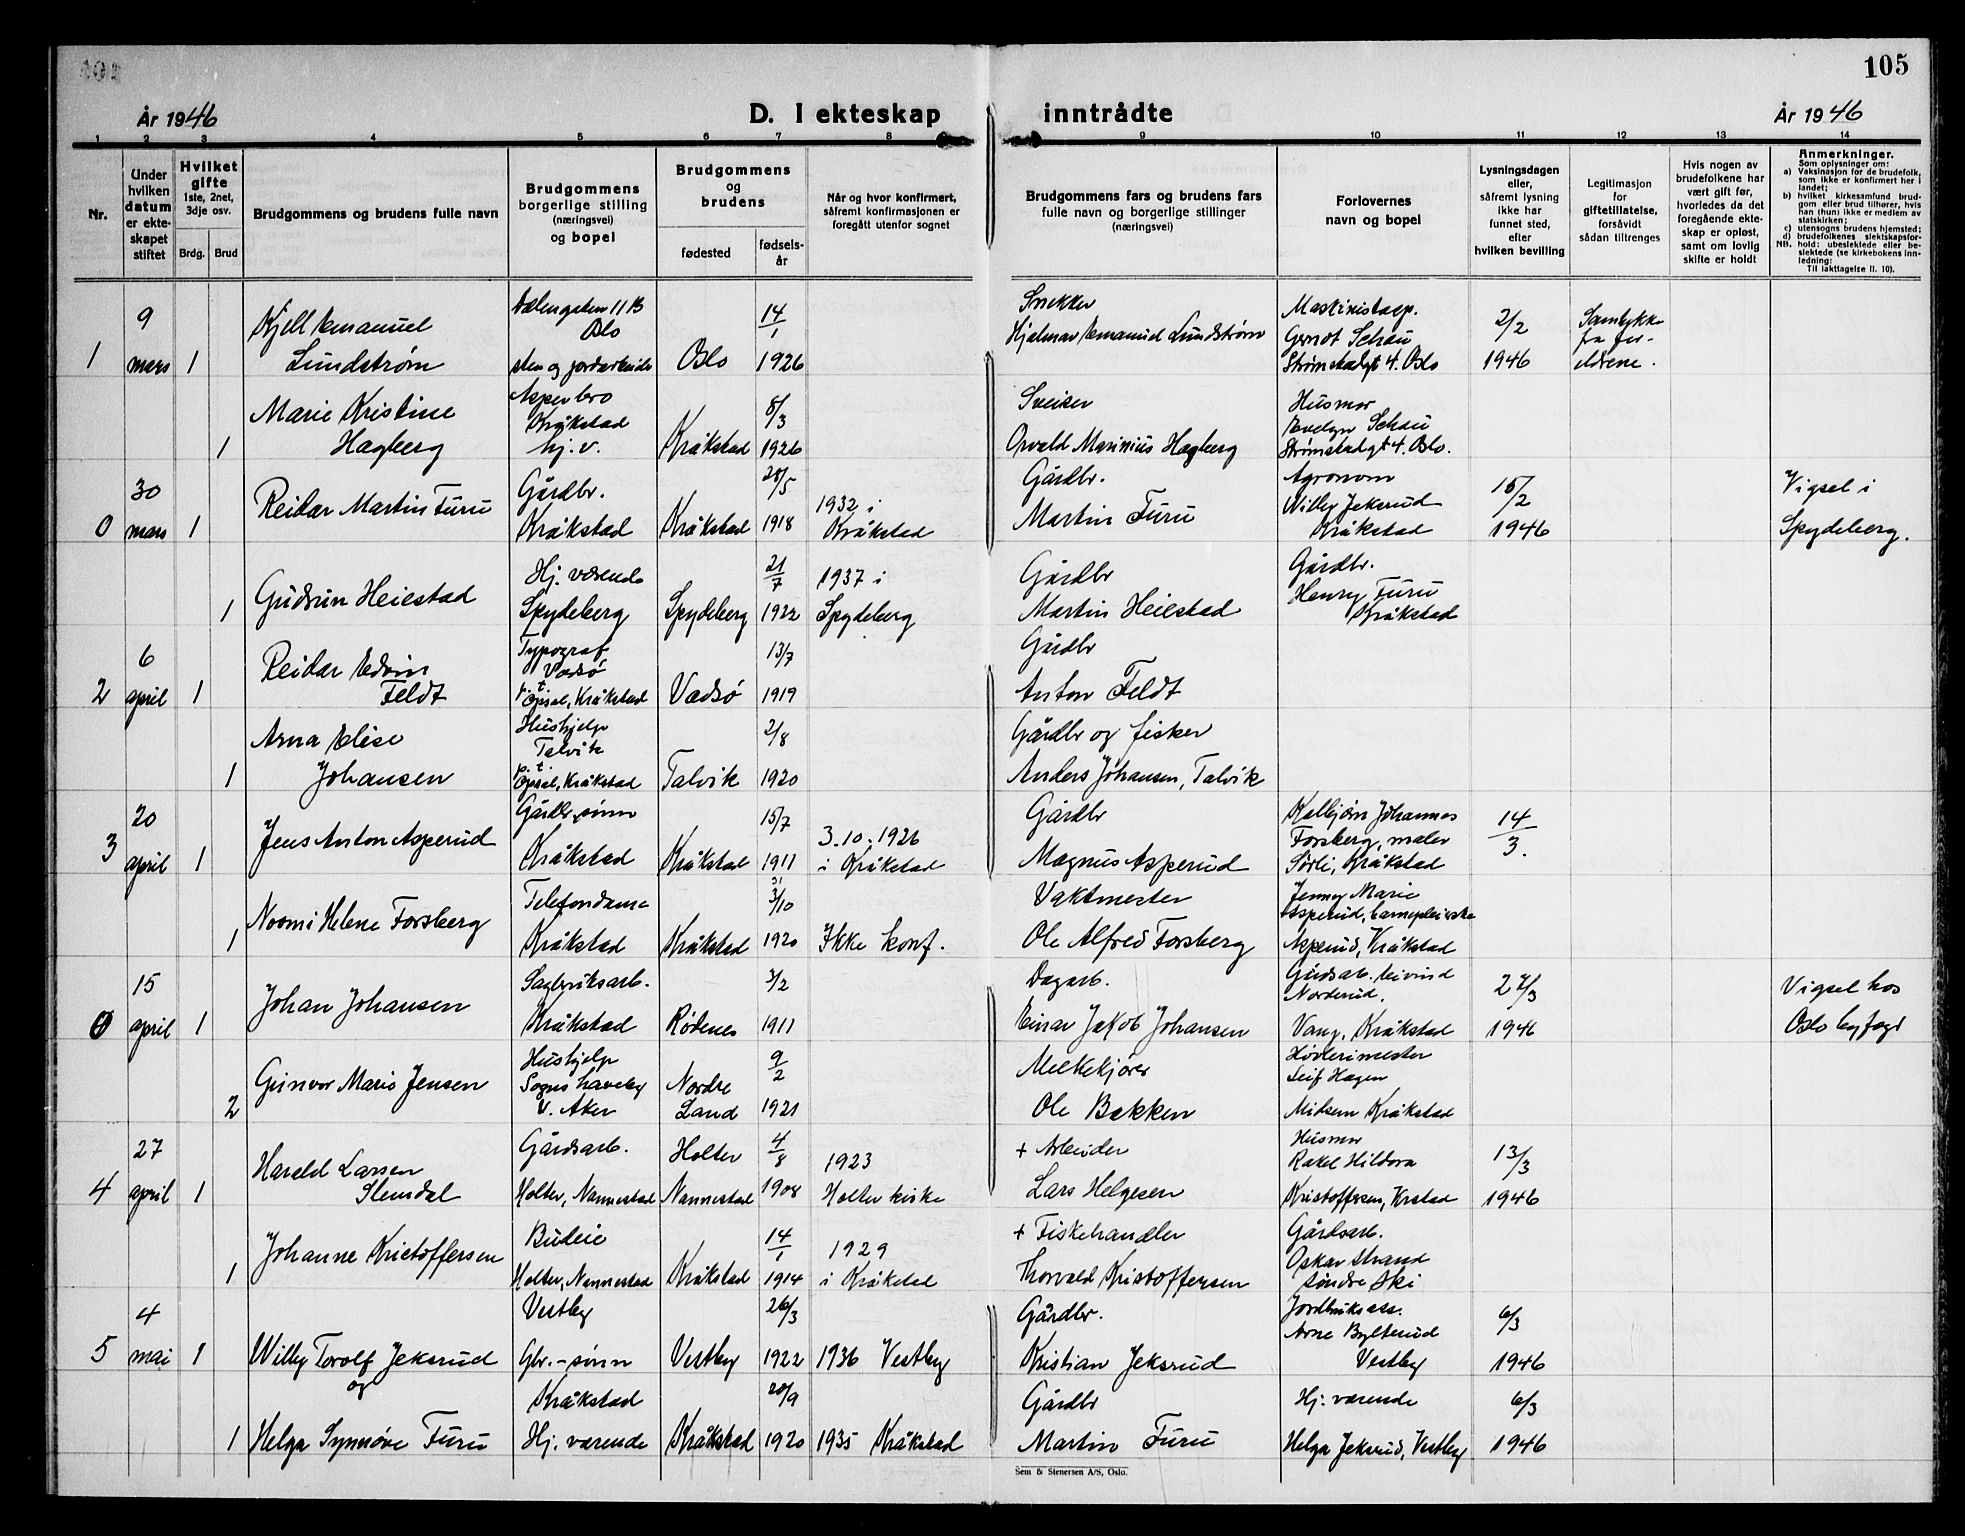 105
År 1946
D. I ekteskap inntrådte
År 1946
1 2 3 4 5 6 7 8 9 10 11 12 13 14
Nr.
Under hvilken datum er ekteskapet stiftet
Hvilket gifte 1ste, 2net, 3dje osv.
Brdg. Brud
Brudgommens og brudens fulle navn
Brudgommens borgerlige stilling (næringsvei) og bopel
Brudgommens og brudens
fødested
fødselsår
Når og hvor konfirmert, såfremt konfirmasjonen er foregått utenfor sognet
Brudgommens fars og brudens fars fulle navn og borgerlige stillinger (næringsvei)
Forlovernes navn og bopel
Lysningsdagen eller, såfremt lysning ikke har funnet sted, efter hvilken bevilling
Legitimasjon for giftetillatelse, forsåvidt sådan tiltrenges
Hvis nogen av brudefolkene har vært gift før, hvorledes da det foregående ekteskap er opløst, samt om lovlig skifte er holdt
Anmerkninger.
Som oplysninger om:
a) Vaksinasjon for de brudefolk, som ikke er konfirmert her i landet;
b) hvilket kirkesamfund brudgom eller brud tilhører, hvis han (hun) ikke er medlem av statskirken;
c) utensogns brudens hjemsted;
d) brudefolkenes slektskapsforhold: ubeslektede eller beslektede (se kirkebokens innledning:
NB. Til iakttagelse II. 10).
1 9 mars 1 Kjell Emanuel Lundstrøm
Vålengaten 11 B Oslo
sten og jordarbeider
Oslo 14/1 1926
Snekker
Hjalmar Emanuel Lundstrøm
Gerndt Schau
Strømstadgt 4. Oslo
2/2 1946
Samtykke fra foreldrene.
1 Marie Kristine Hagberg
Asperbro Kråkstad
hj. v.
Kråkstad 8/3 1926
Sveiser
Osvald Marinius Hagberg
Husmor
Evelyn Schau
Strømstadgt 4. Oslo.
0 30 mars 1 Reidar Martin Furu
Gårdbr.
Kråkstad Kråkstad 20/5 1918
1932 i Kråkstad
Gårdbr.
Martin Furu
Agronom
Willy Jeksrud
Kråkstad
15/2 1946
Vigsel i Spydeberg.
1 Gudrun Heiestad
Hj. værende
Spydeberg Spydeberg 21/7 1922
1937 i Spydeberg
Gårdbr
Martin Heiestad
Gårdbr.
Henry Furu
Kråkstad
2 6 april 1 Reidar Edvin Feldt
Typograf
Vadsø
p.t. Opsal, Kråkstad
Vadsø 13/7 1919
Gårdbr
Anton Feldt
1 Arna Elise Johansen
Hushjelp
Talvik
p.t. Opsal, Kråkstad
Talvik 2/8 1920
Gårdbr og fisker
Anders Johansen, Talvik
3 20 april 1 Jens Anton Asperud
Gårdbr. sønn
Kråkstad Kråkstad 15/7 1911
3.10.1926 i Kråkstad
Gårdbr
Magnus Asperud
Kolbjørn Johannes
Forsberg, maler
Sørli, Kråkstad
14/3.
1 Noomi Helene Forsberg
Telefondame
Kråkstad Kråkstad 1920
Ikke konf.
Vaktmester
Ole Alfred Forsberg
Jenny Marie
Asperud, barnepleierske
Asperud, Kråkstad
0 15 april 1 Johan Johansen
Sagbruksarb.
Kråkstad Rødenes 3/2 1911
Dagarb.
Einar Jakob Johansen
Gårdsarb. Eivind
Norderud.
Vang, Kråkstad
27/3 1946
Vigsel hos Oslo byfogd
2 Gunvor Marie Jensen
Hushjelp
Sogns haveby
V. Aker
Nordre Land 9/2 1921
Melkekjører
Ole Bakken
Høvlerimester
Leif Hagen
Midsem Kråkstad
4 27 april 1 Harald Larsen Stensdal
Gårdsarb.
Holter, Nannestad
Holter Nannestad 4/8 1908
1923 Holter kirke
+ Arbeider
Lars Helgesen
Husmor
Rakel Hildora
Kristoffersen, Krstad
13/3 1946
1 Johanne Kristoffersen
Budeie
Holter, Nannestad
Kråkstad 14/1 1914
1929 i Kråkstad
+ Fiskehandler
Thorvald Kristoffersen
Gårdsarb.
Oskar Strand
Søndre Ski
5 4 mai 1 Willy Torolf Jeksrud
og
Vestby
Gbr.-sønn
Vestby 26/3 1922
1936 Vestby
Gårdbr.
Kristian Jeksrud
Jordbruksass.
Arne Bylterud
Vestby
6/3 1946
1 Helga Synnøve Furu
Kråkstad
Hj. værende
Kråkstad 20/9 1920
1935 Kråkstad
Gårdbr
Martin Furu
Hj. værende
Helga Jeksrud, Vestby
6/3 1946
Sem & Stenersen A/S, Oslo.